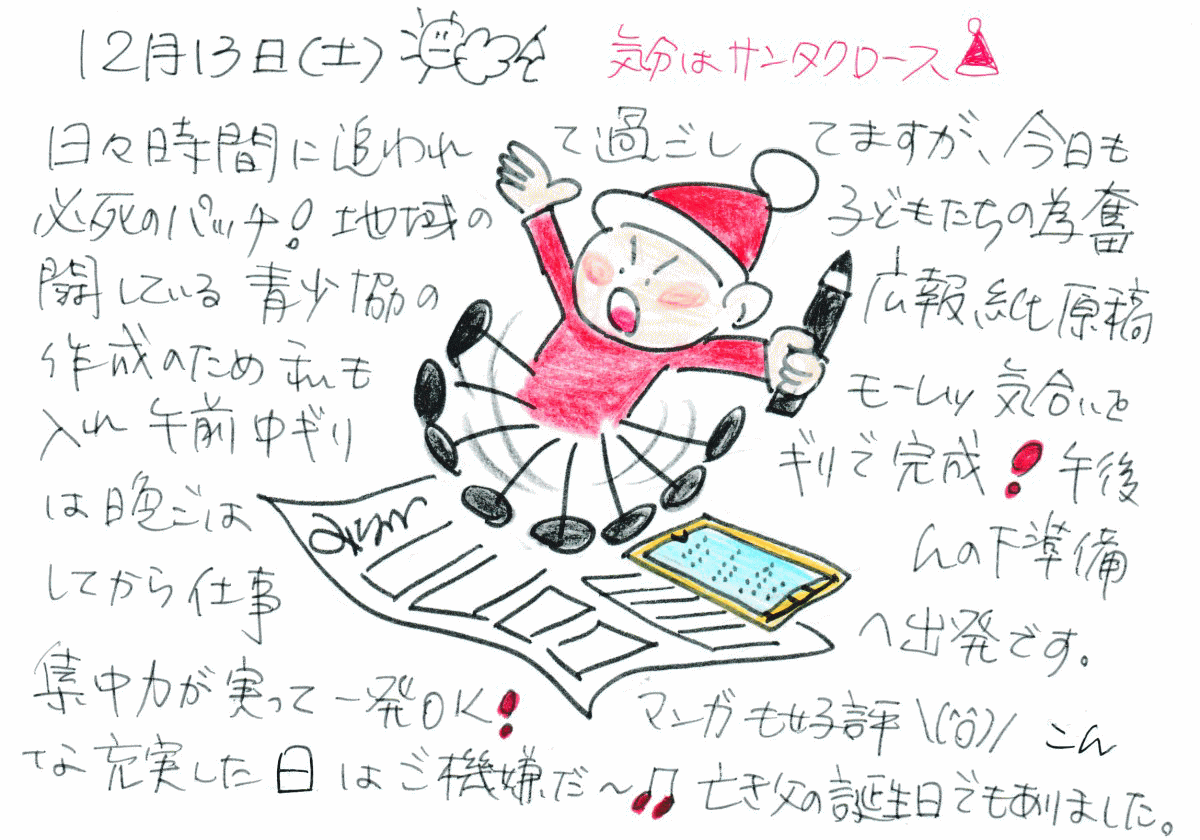 12月13日(土)
気分はサンタクロース
日々時間に追われて過ごしてますが、今日も
必死のパッチ！地域の子どもたちの為奮
闘している青少協の広報紙原稿
作成のため私もモーレツ気合いを
入れ午前中ギリギリで完成！午後
は晩ごはんの下準備
してから仕事へ出発です。
集中力が実って一発OK！マンガも好評\(^O^)/こん
な充実した日はご機嫌だ～♫亡き父の誕生日でもありました。